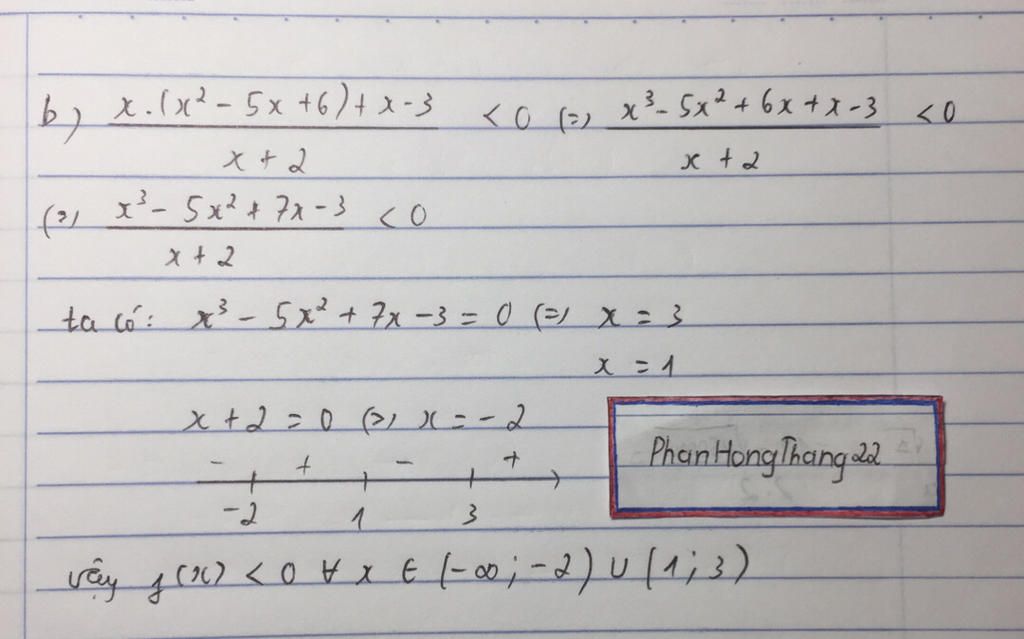 b) x.(x² - 5x + 6) + x - 3 / x + 2 < 0 (=) x³ - 5x² + 6x + x - 3 / x + 2 < 0
(=) x³ - 5x² + 7x - 3 / x + 2 < 0
ta có: x³ - 5x² + 7x - 3 = 0 (=) x = 3
x = 1
x + 2 = 0 (=) x = -2
- + - +
-2 1 3
PhanHongThang22
vậy f(x) < 0 ∀ x ∈ (-∞; -2) ∪ (1; 3)